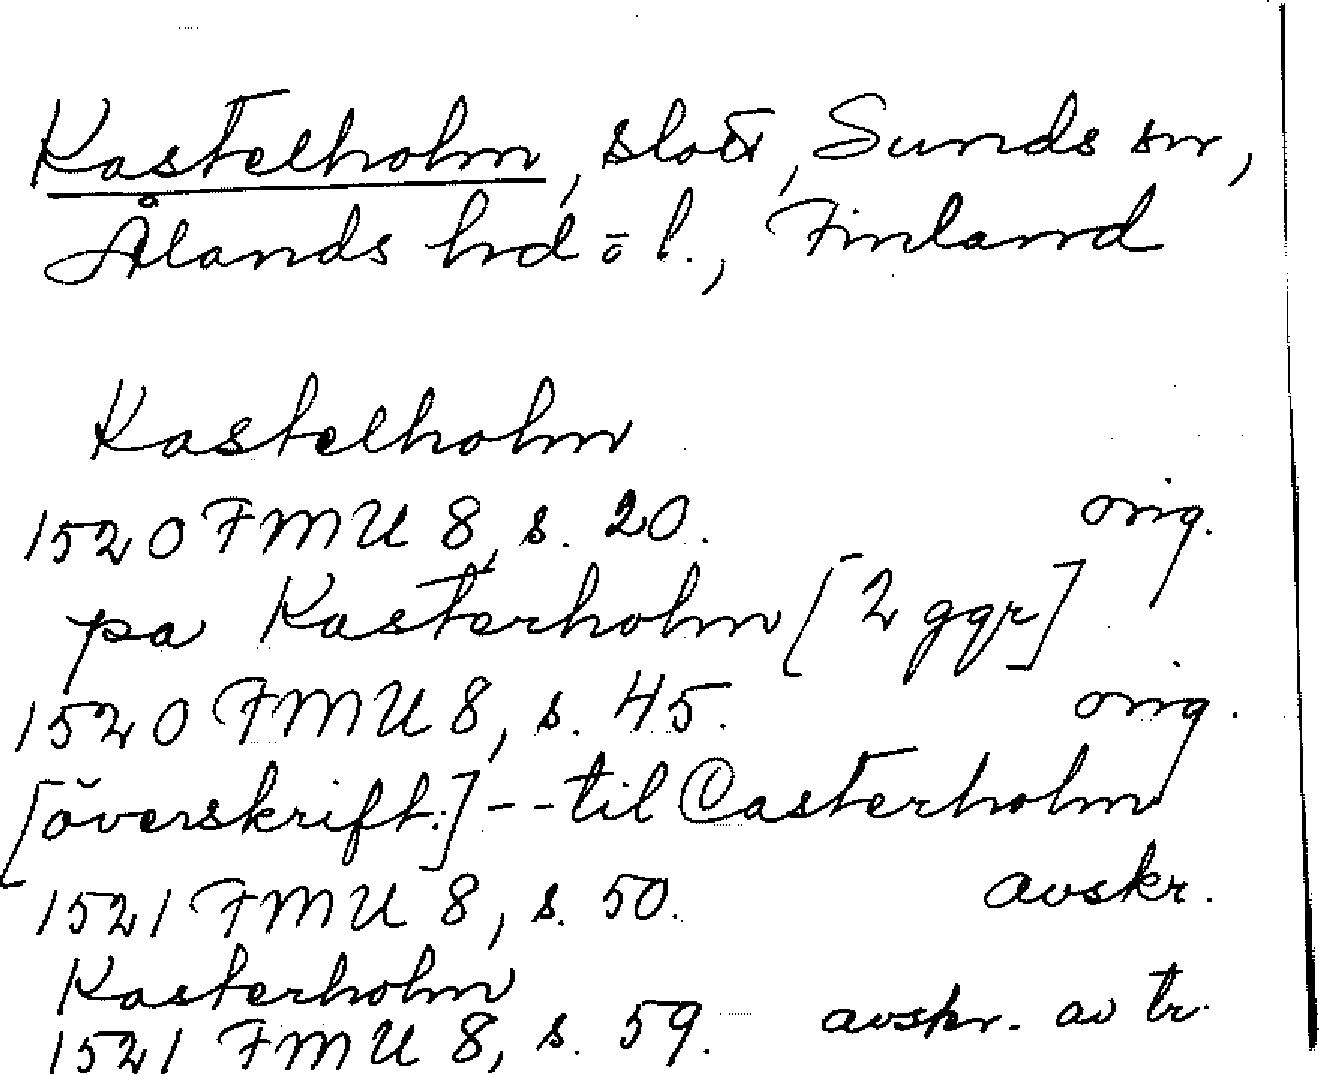 Kastelholm, slott, Sunds sn,
Ålands hrd o l., Finland
Kastelholm
1520 FMU 8, s. 20. orig.
pa Kasterholm [2 ggr]
1520 FMU 8, s. 45. orig.
[överskrift:] -- til Casterholm
1521 FMU 8, s. 50. avskr.
Kasterholm
1521 FMU 8, s. 59. avskr. av tr.